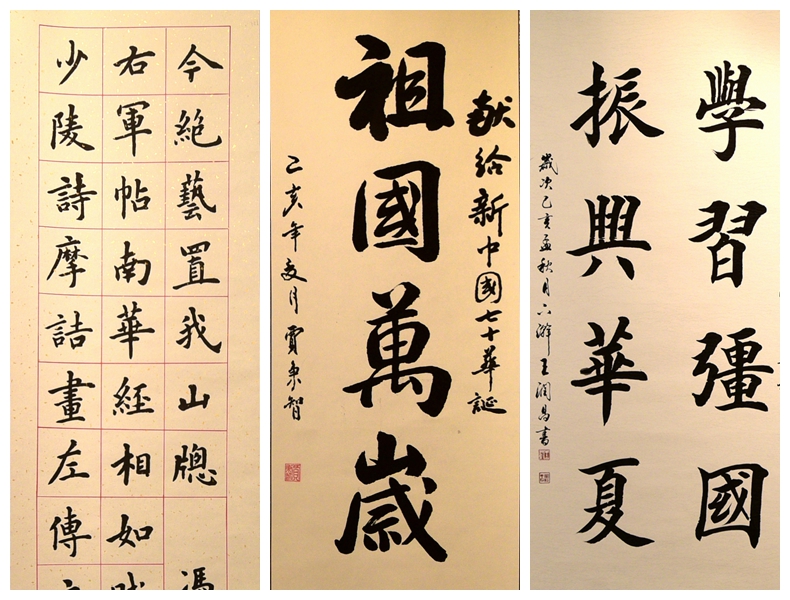 今絶藝置我山牕
馮
右軍帖南華經相如
少陵詩摩詰畫左傳
献给新中國七十華誕
祖國萬歲
己亥年夏月賈秉智
學習彊國
振興華夏
歲次己亥孟秋月六澥王潤昌書